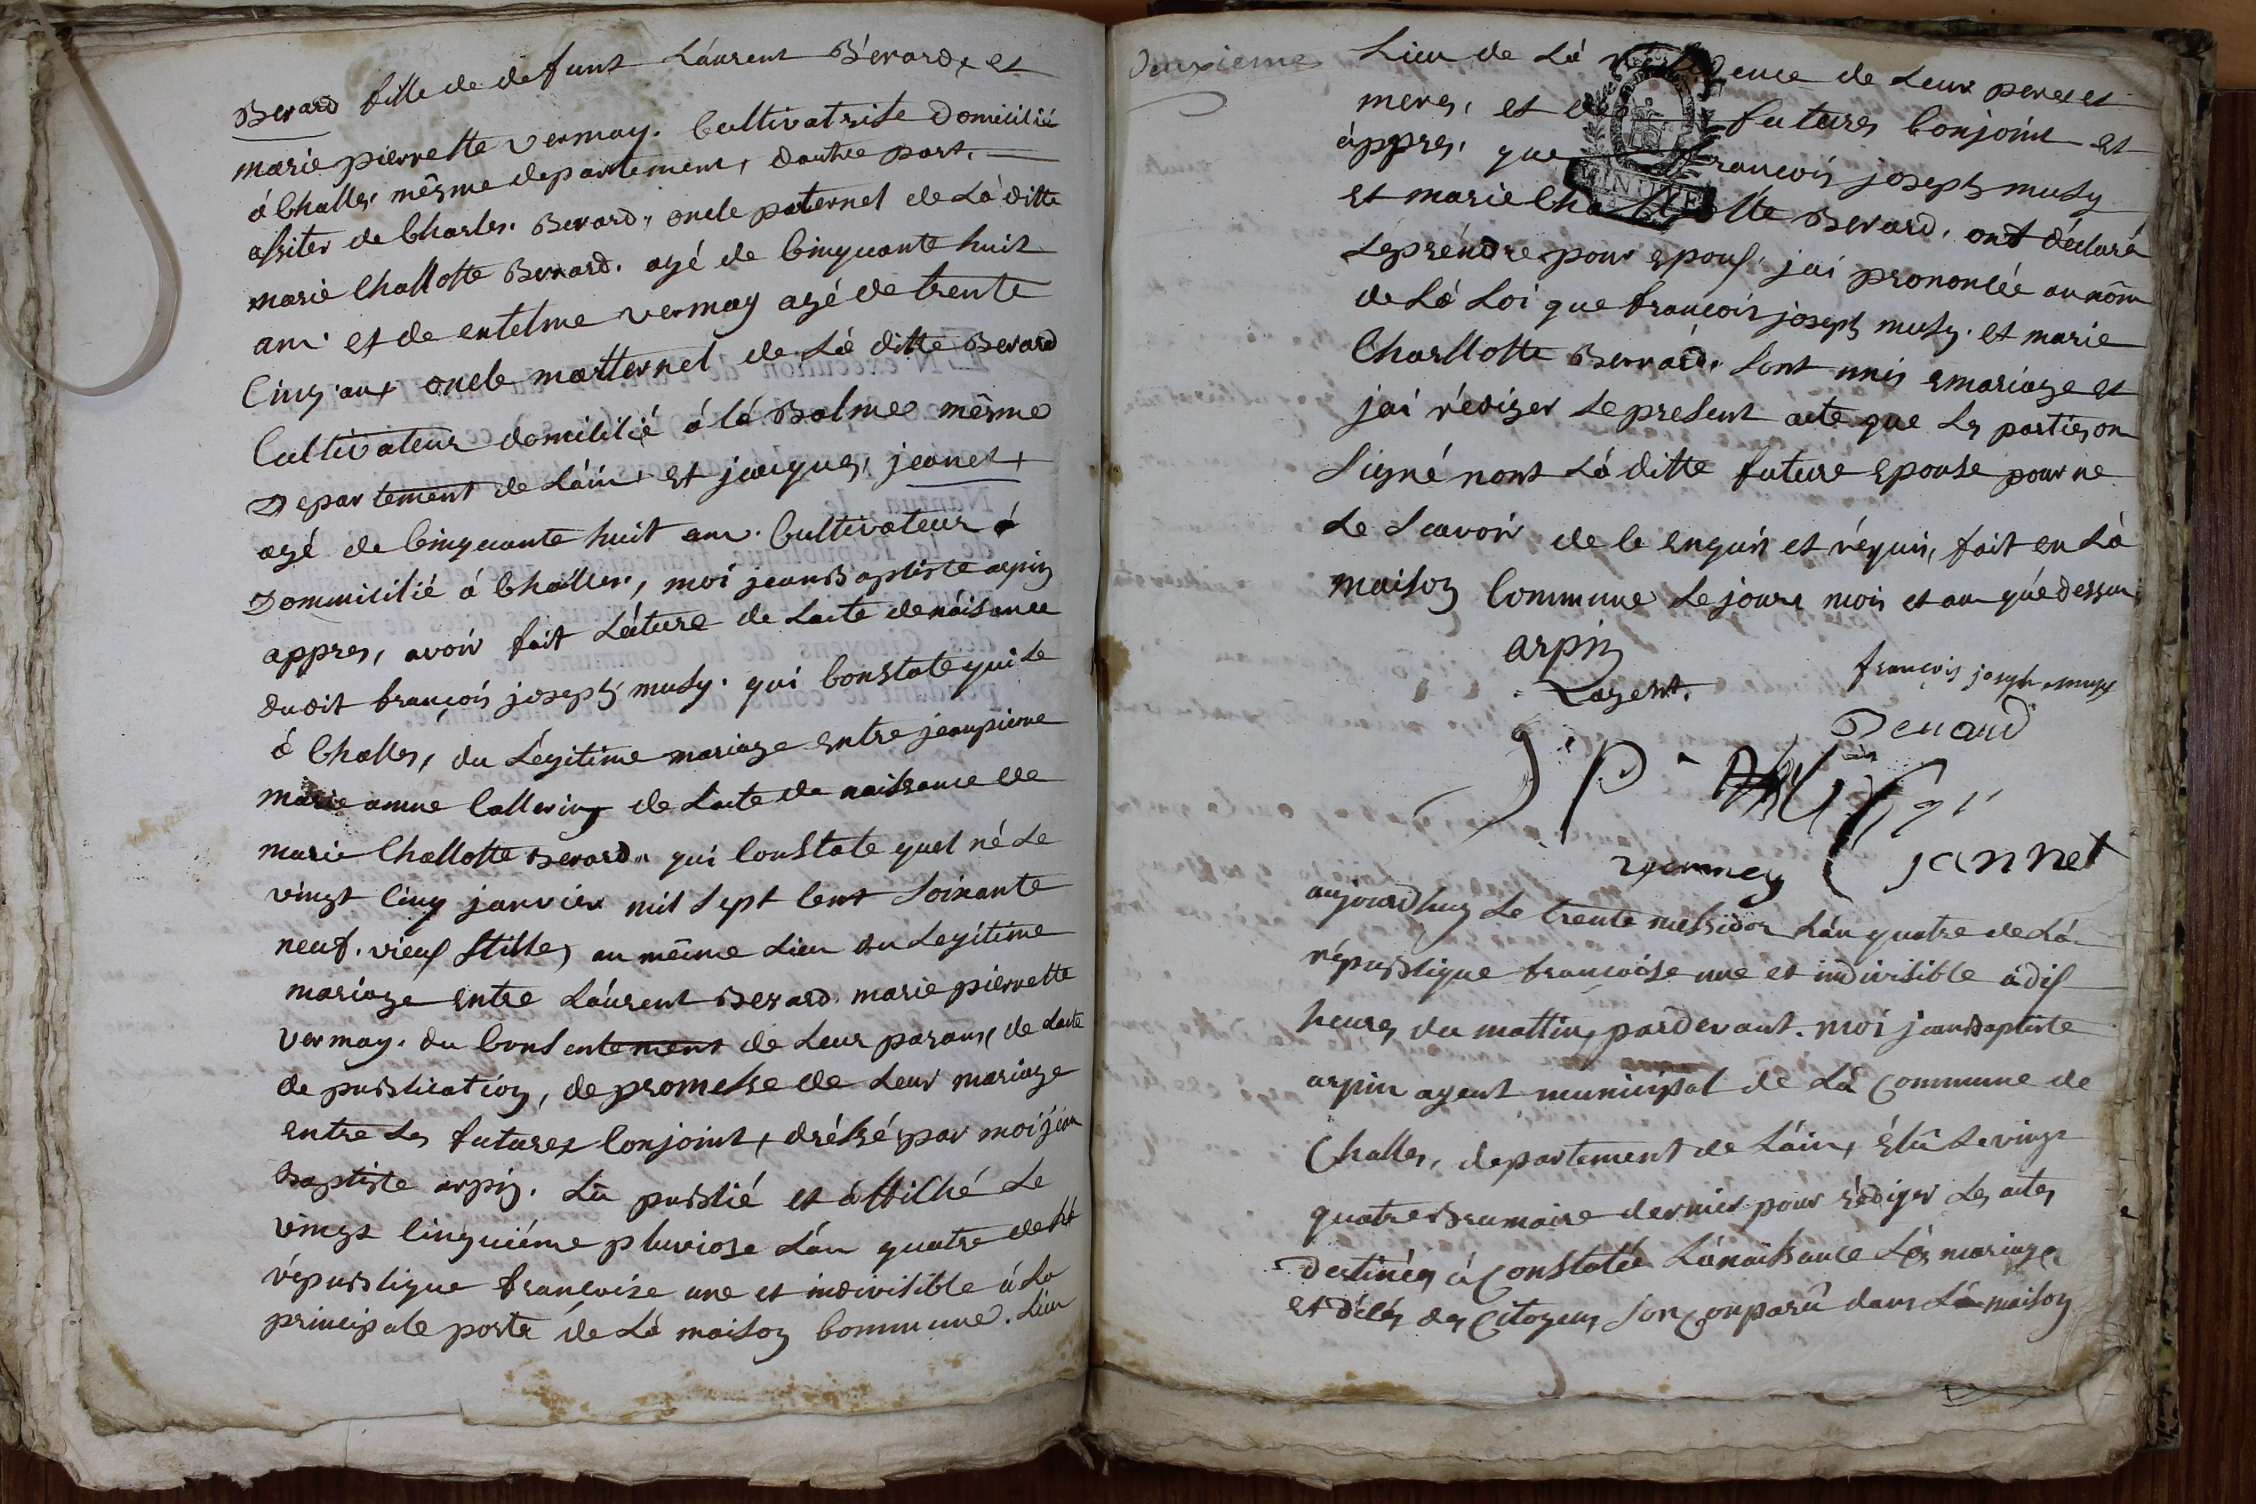 Berard fille de defunt Laurent Bérard, et
marie pierrette vermay. Cultivatrise Domicilié
á Challes, mêsme departement, d'autre part,
assiter de Charles Berard, oncle paternel de La ditte
marie Challotte Berard. agé de Cinquante huit
ans et de entelme vermay agé de trente
Cinq ans oncle matternel de La ditte Berard
Cultivateur domicilié á lá Balme mêsme
Departement de Láin et jacques, jeanet,
agé de Cinquante huit ans. Cultivateur á
Dommicilié á Challes, moi jean Baptiste arpin
appres, avoir fait Láture de Lacte de náisance
dudit françois joseph musy. qui Constate qui le
á Challes, du Légitime mariage entre jean pierre
marie anne Callering de Lacte de naissance de
marie Challotte Berard, qui Constate quel né Le
vingt Cinq janvier mil sept Cent soixante
neuf. vieux stille, au même Lieu du Legitime
mariage entre Láurent Berard marie pierrette
vermay. du Consentement de Leur parans, de Lacte
de publication, de promesse de Leur mariage
entre Les futures Conjoint, dréssé par moi jéan
Baptiste arpin. Lu publié et áffiché Le
vingt Cinquiéme pluviose Lán quatre de La
républigue françoise une et indivisible á La
principale porte de Lá maison Commune. Lieu
Deuxieme
Lieu de Lá residence de Leur peres et
meres, et des futures Conjoint et
áppres, que françois joseph musy
et marie Challotte Berard, ont déclaré
Le prendre pour epoux, jai prononcée au nôm
de Lá Loi que françois joseph musy. et marie
Charllotte Berrárd, sont unis emariage et
jai rédiger Le present acte que Les parties on
signé nont Lá ditte future epouse pour ne
Le scavoir de Ce enquis et réquis, fait en Lá
maison Commune Le jours mois et an qúe dessus
MINUTE
arpin
Lagent.
françois joseph musy
Berard
J P
vermey
jannet
aujourdhuy Le trente messidor Lán quatre de Lá
républigue françoise une et indivisible á dix
heures du mattin, pardevant. moi jean Baptiste
arpin agent municipal de Lá Commune de
Challes, département de Láin, élû Le vingt
quatre Brumaire dernier pour rédiger Les actes
Destinés á Constatée Lá naissance Les mariages
et décés des Citoyens son Comparû dans Lá maison